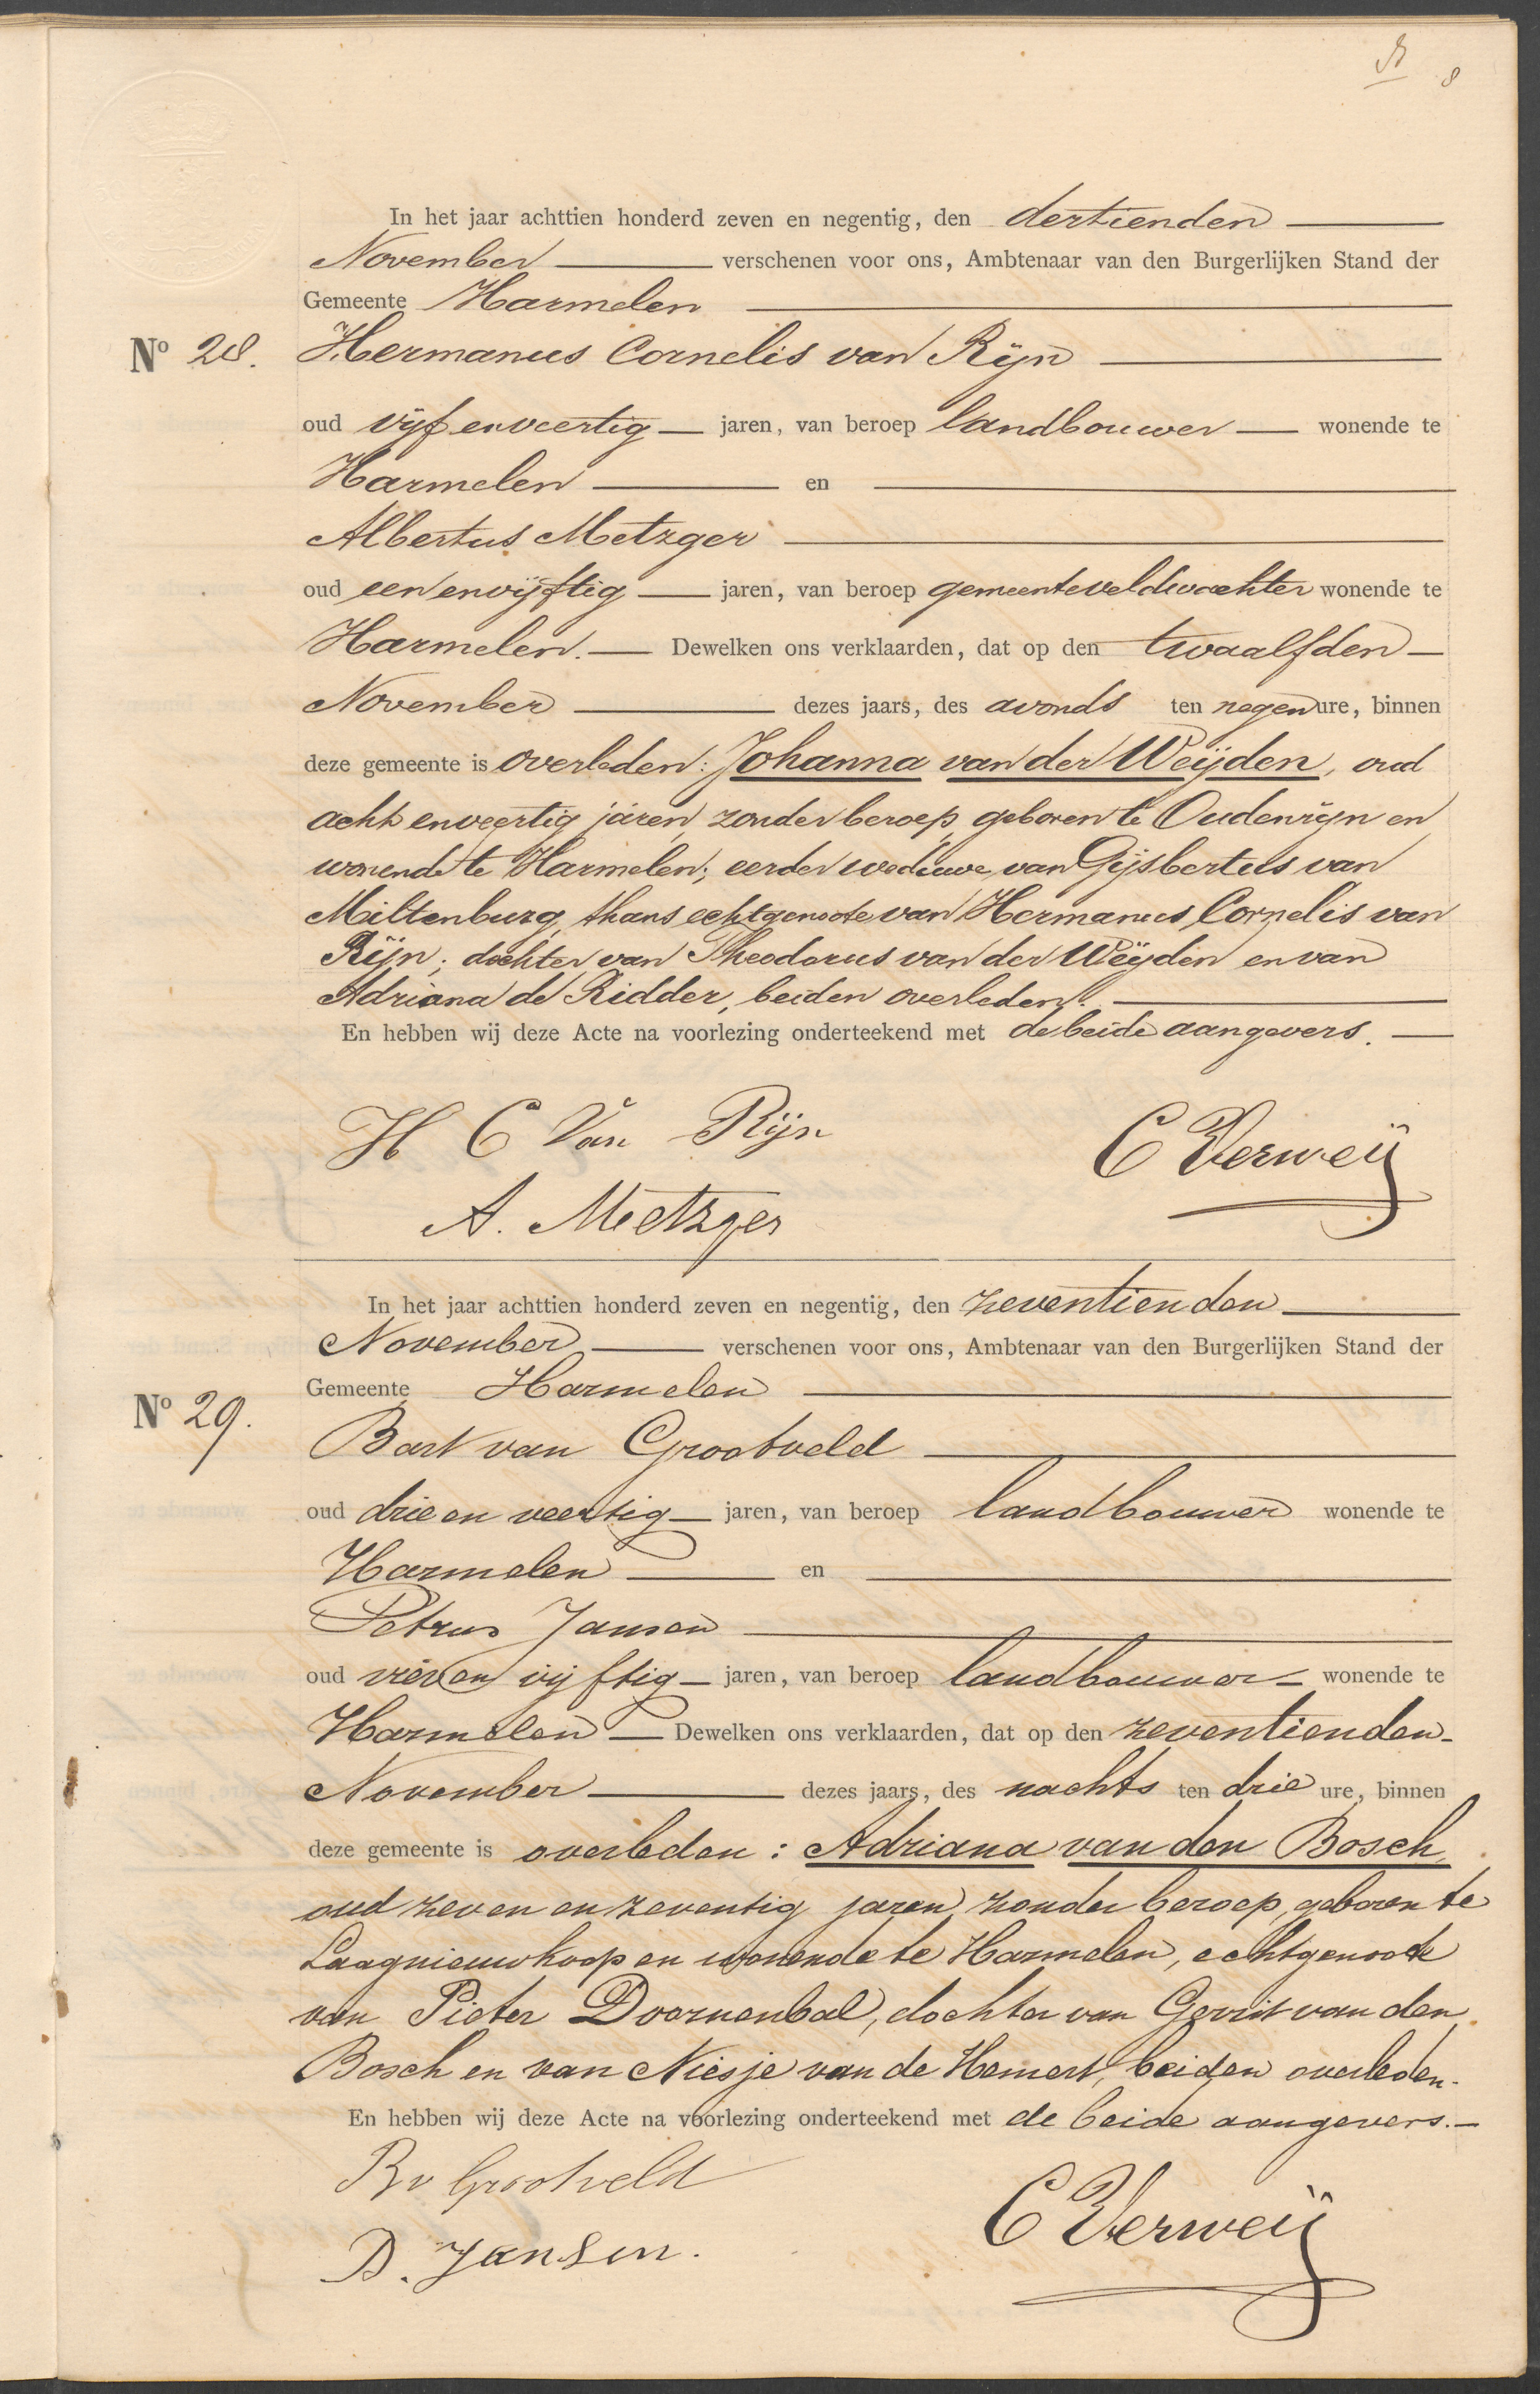 8
In het jaar achttien honderd zeven en negentig, den dertienden
November verschenen voor ons, Ambtenaar van den Burgerlijken Stand der
Gemeente Harmelen
No 28. Hermanus Cornelis van Rijn
oud vijf en veertig jaren, van beroep landbouwer wonende te
Harmelen en
Albertus Metzger
oud een en vijftig jaren, van beroep gemeenteveldwachter wonende te
Harmelen. Dewelken ons verklaarden, dat op den twaalfden
November dezes jaars, des avonds ten negen ure, binnen
deze gemeente is overleden: Johanna van der Weijden, oud
acht en veertig jaren, zonder beroep, geboren te Oudenrijn en
wonende te Harmelen; eerder weduwe van Gijsbertus van
Miltenburg, thans echtgenoote van Hermanus Cornelis van
Rijn; dochter van Theodorus van der Weijden en van
Adriana de Ridder, beiden overleden.
En hebben wij deze Acte na voorlezing onderteekend met de beide aangevers.
H C Van Rijn
C Verweij
A. Metzger
In het jaar achttien honderd zeven en negentig, den zeventienden
November verschenen voor ons, Ambtenaar van den Burgerlijken Stand der
Gemeente Harmelen
No 29.
Bart van Grootveld
oud drie en veertig jaren, van beroep landbouwer wonende te
Harmelen en
Petrus Jansen
oud vier en vijftig jaren, van beroep landbouwer wonende te
Harmelen Dewelken ons verklaarden, dat op den zeventienden
November dezes jaars, des nachts ten drie ure, binnen
deze gemeente is overleden: Adriana van den Bosch,
oud zeven en zeventig jaren, zonder beroep, geboren te
Laagnieuwkoop en wonende te Harmelen, echtgenoote
van Pieter Doornenbal, dochter van Gerrit van den
Bosch en van Niesje van de Hemert, beiden overleden.
En hebben wij deze Acte na voorlezing onderteekend met de beide aangevers.
B v Grootveld
C Verweij
P. Jansen.